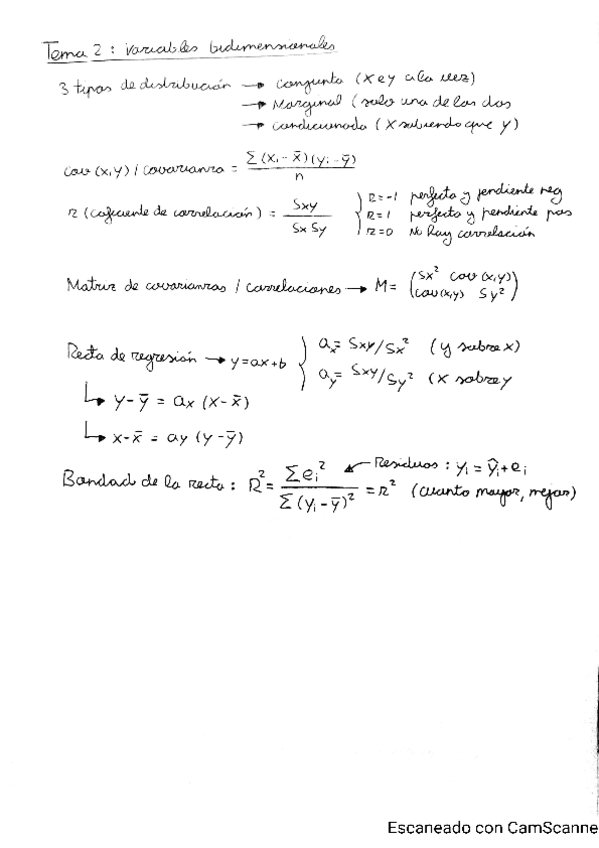 Tema 2: variables bidimensionales
3 tipos de distribución → conjunta (X e y a la vez)
→ Marginal (solo una de las dos
→ condicionada (X sabiendo que y)
cov (x,y) / covarianza = Σ(xi - x̄)(yi - ȳ) / n
r (coficiente de correlación) = Sxy / Sx Sy
r=-1 perfecta y pendiente neg
r=1 perfecta y pendiente pos
r=0 No hay correlación
Matriz de covarianzas / correlaciones → M= (Sx² cov(x,y)
cov(x,y) Sy²)
Recta de regresión → y=ax+b
ax= Sxy/Sx² (y sobre x)
ay= Sxy/Sy² (x sobre y
↳ y-ȳ = ax (x-x̄)
↳ x-x̄ = ay (y-ȳ)
Bondad de la recta: R² = Σei² / Σ(yi-ȳ)² = r² (cuanto mayor, mejor)
← Residuos: yi = ŷi + ei
Escaneado con CamScanne